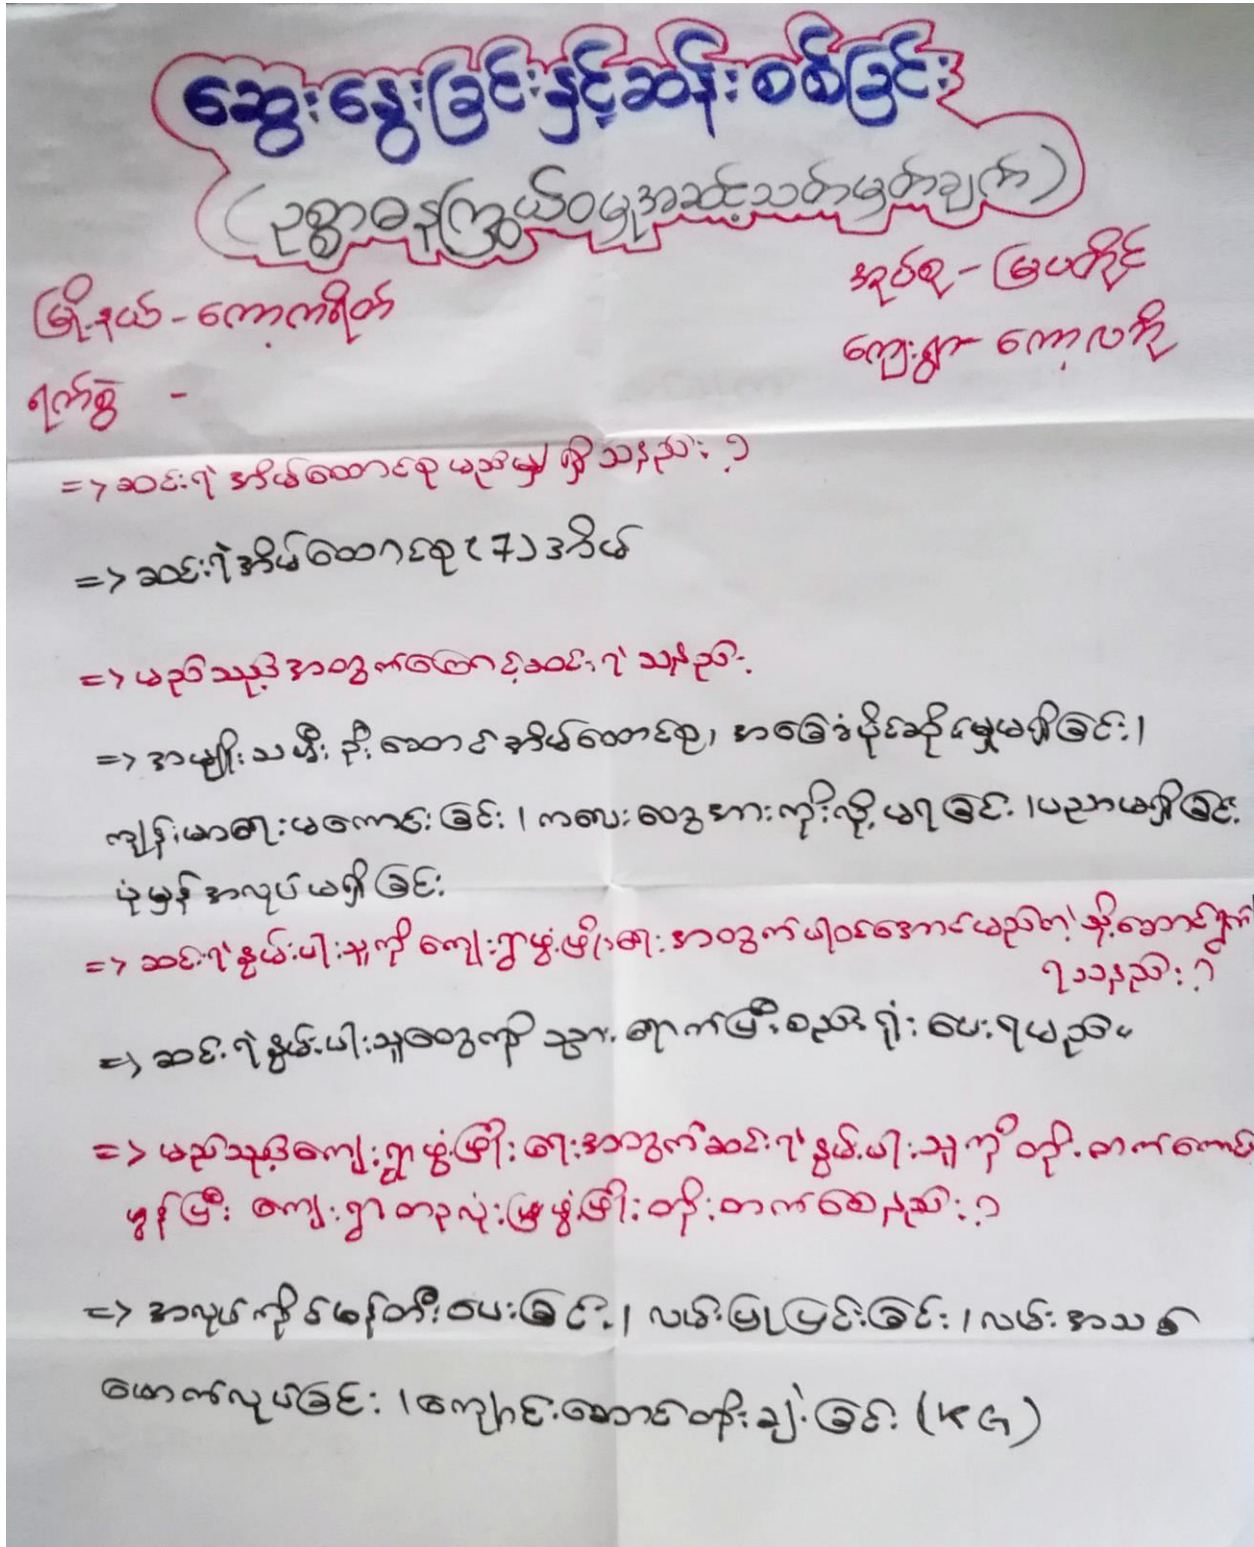 ဆွေးနွေးခြင်းနှင့်ဆန်းစစ်ခြင်း
(ဥစ္စာဓနကြွယ်ဝမှုအဆင့်သတ်မှတ်ချက်)
မြို့နယ် - ကော့ကရိတ်
အုပ်စု - မြပတိုင်
ရက်စွဲ -
ကျေးရွာ - ကော့လတို
=> ဆင်းရဲအိမ်ထောင်စုမည်မျှရှိသနည်း.?
=> ဆင်းရဲအိမ်ထောင်စု (7) အိမ်
=> မည်သည့်အတွက်ကြောင့်ဆင်းရဲသနည်း.
=> အမျိုးသမီးဦးဆောင်အိမ်ထောင်စု၊ အခြေခံပိုင်ဆိုင်မှုမရှိခြင်း၊
ကျန်းမာရေးမကောင်းခြင်း၊ ကလေးတွေအားကိုးလို့မရခြင်း၊ ပညာမရှိခြင်း
ပုံမှန်အလုပ်မရှိခြင်း
=> ဆင်းရဲနွမ်းပါးသူကိုကျေးရွာဖွံ့ဖြိုးရေးအတွက်ပါဝင်အောင်မည်ကဲ့သို့ဆောင်ရွက်
ရသနည်း.?
=> ဆင်းရဲနွမ်းပါးသူတွေကိုသွားရောက်ပြီးစည်းရုံးပေးရမည်။
=> မည်သည့်ကျေးရွာဖွံ့ဖြိုးရေးအတွက်ဆင်းရဲနွမ်းပါးသူကိုတိုးတက်ကောင်း
မွန်ပြီး ကျေးရွာတခုလုံးမှဖွံ့ဖြိုးတိုးတက်စေနည်း.?
=> အလုပ်ကိုင်ဖန်တီးပေးခြင်း၊ လမ်းပြုပြင်ခြင်း၊ လမ်းအသစ်
ဖောက်လုပ်ခြင်း၊ ကျောင်းဆောင်တိုးချဲ့ခြင်း (KG)